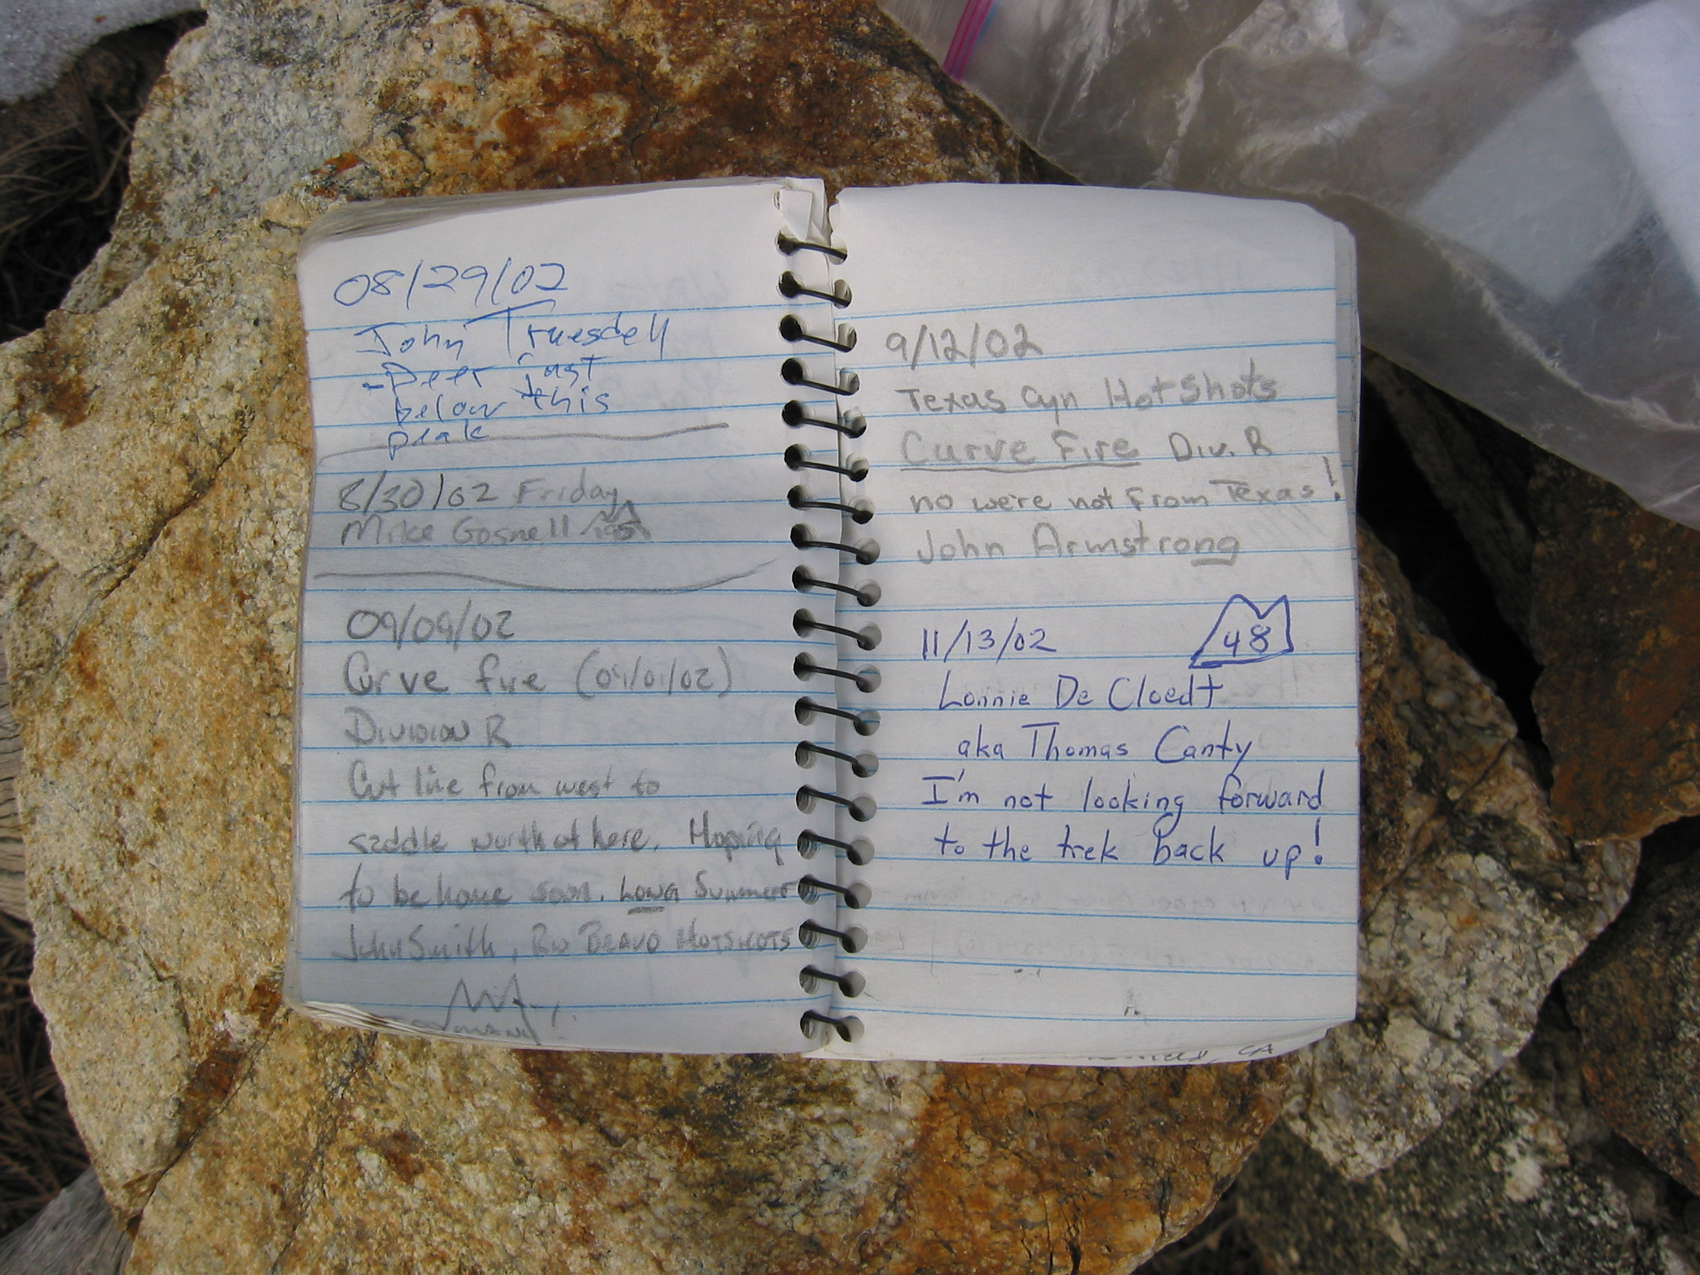 08/29/02
John Truesdell
- Deer just
below this
peak
8/30/02 Friday
Mike Gosnell
09/09/02
Curve fire (09/01/02)
DIVISION R
Cut line from west to
saddle north of here. Hoping
to be home soon. LONG Summer
John Smith, Rio BRAVO HOTSHOTS
9/12/02
Texas Cyn HotShots
Curve Fire Div. R
no were not from Texas!
John Armstrong
11/13/02 48
Lonnie De Cloedt
aka Thomas Canty
I'm not looking forward
to the trek back up!
CA